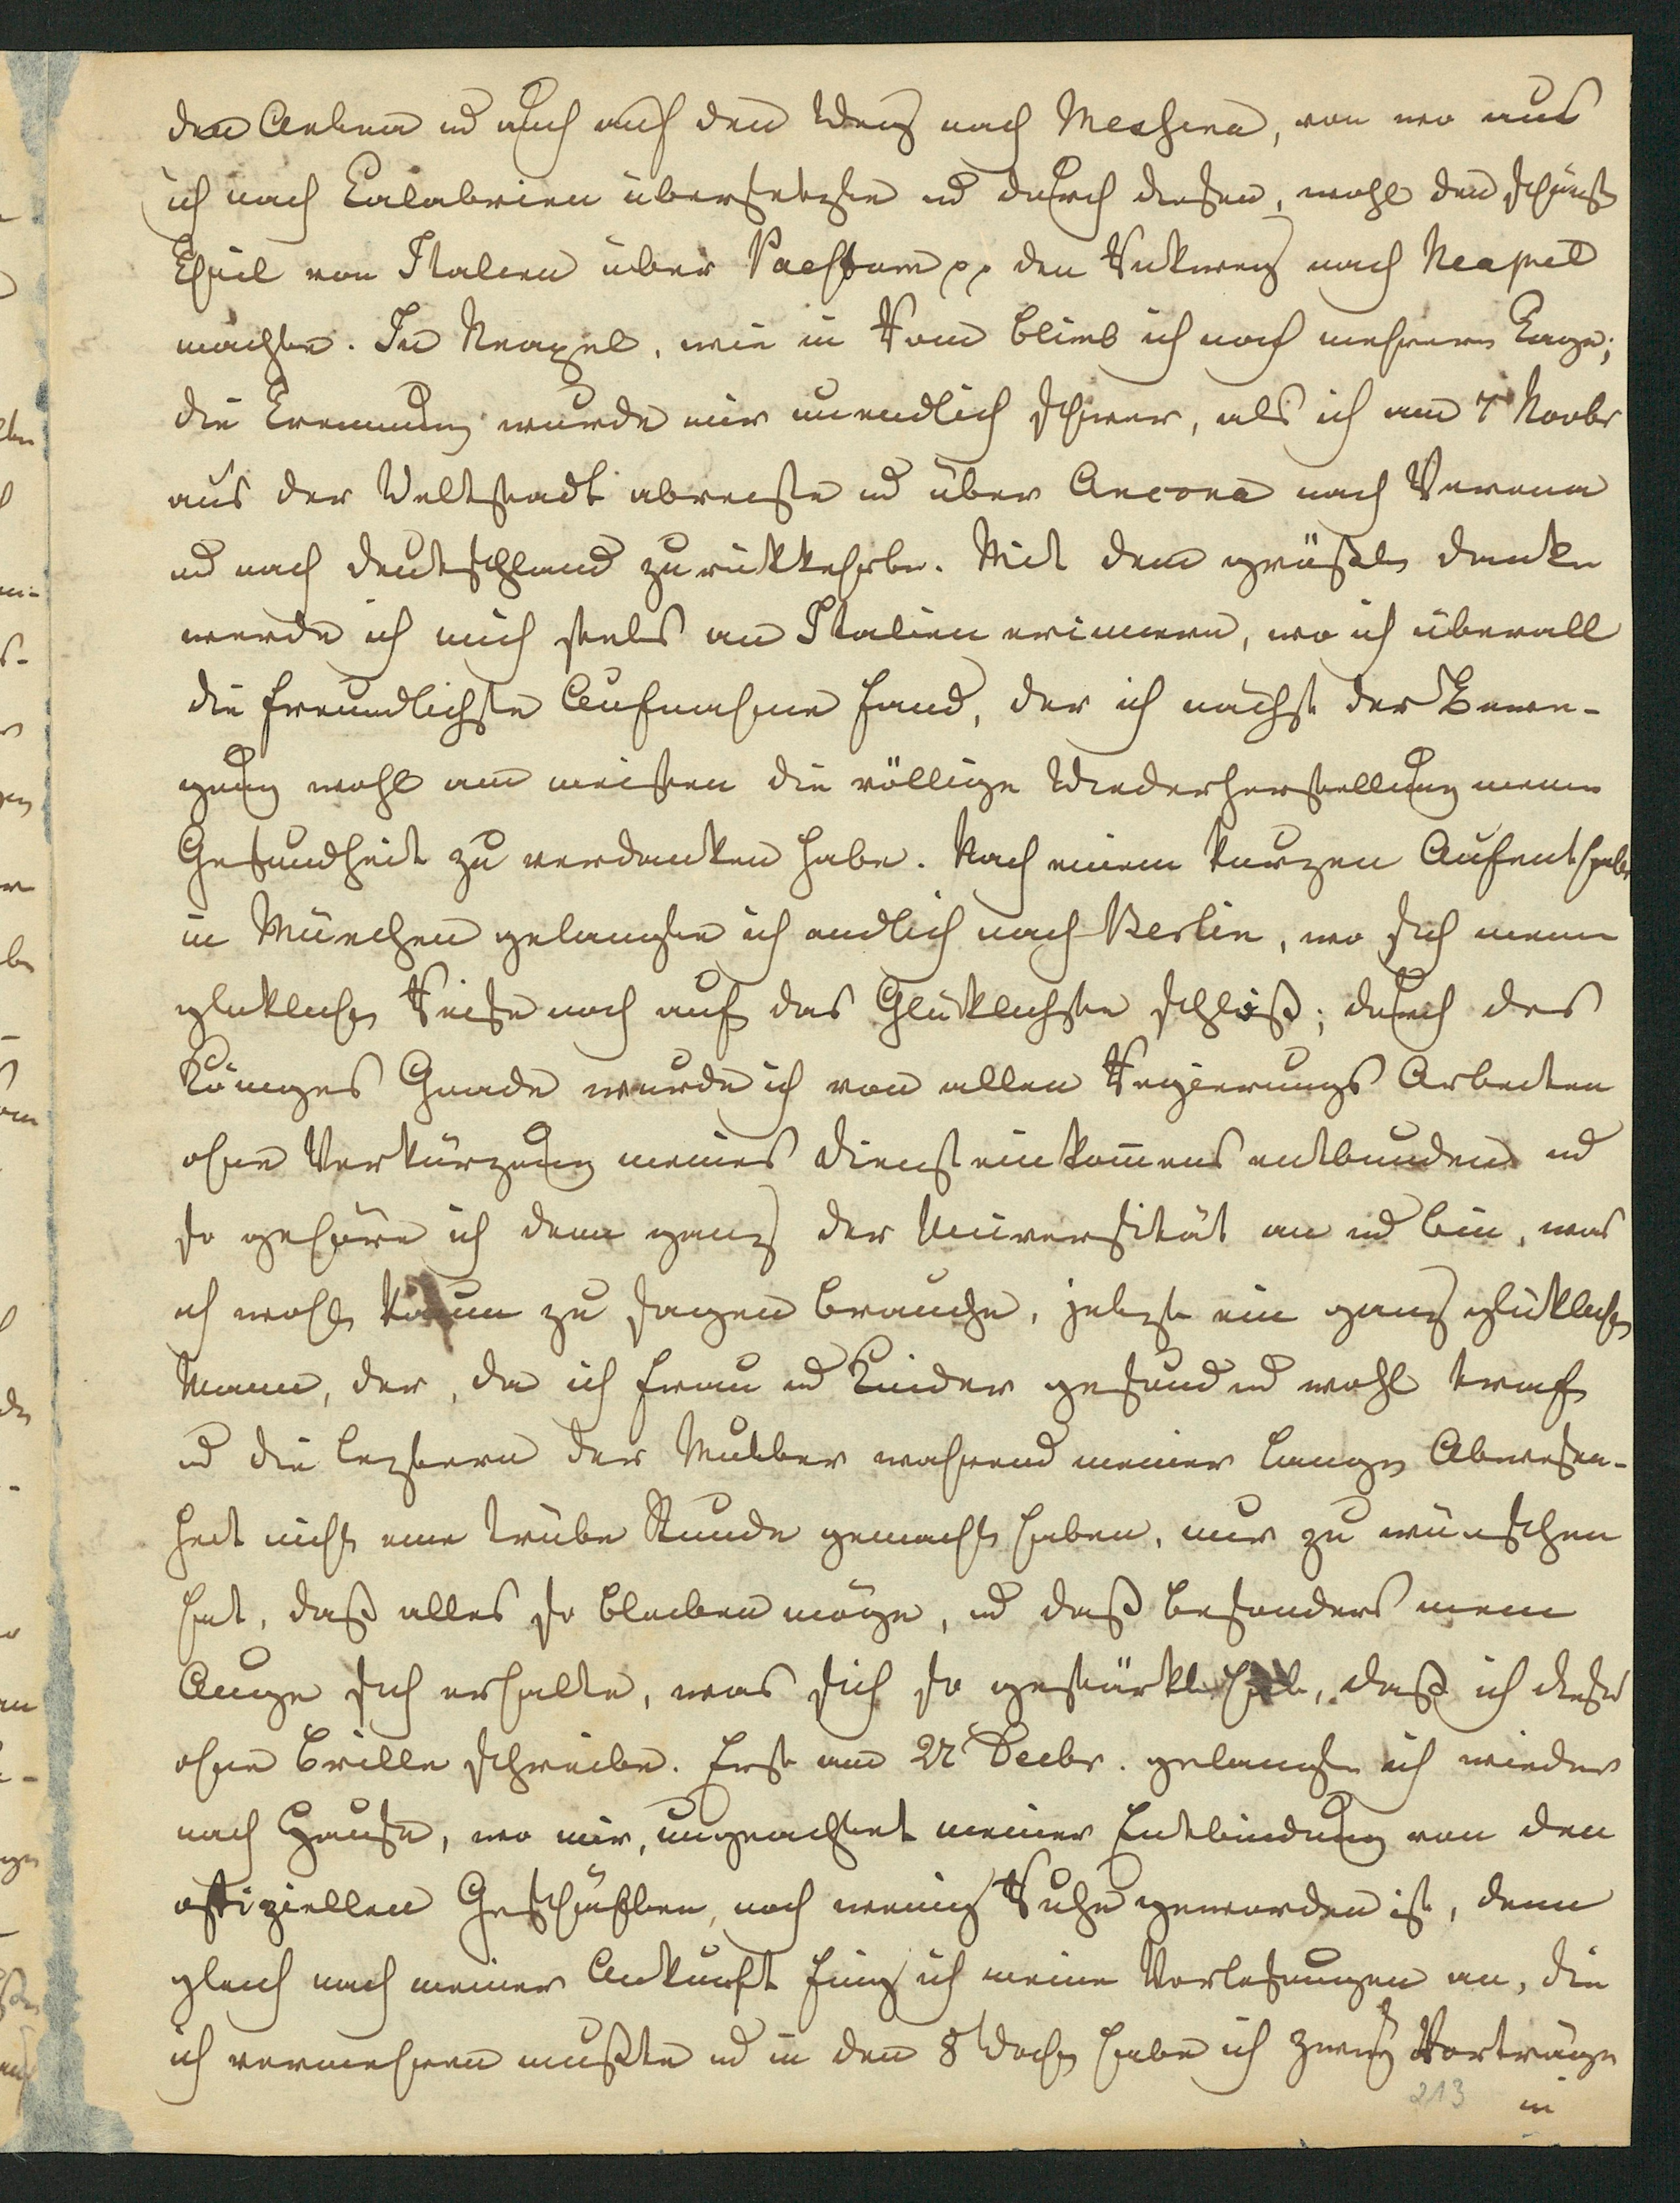 den Aetna ud auch auf dem Weg nach Messina, von wo aus
ich nach Calabrien übersetzte ud durch diesen, wohl den schönst
Theil von Italien über Paestum pp den Rückweg nach Neapel
machte. In Neapel, wie in Rom blieb ich noch mehrere Tage;
die Trennung wurde mir unendlich schwer, als ich am 7 Novbr
aus der Weltstadt abreiste ud über Ancona nach Verona
ud nach Deutschland zurückkehrte. Mit dem größten Danke
werde ich mich stets an Italien erinnern, wo ich überall
die freundlichste Aufnahme fand, der ich nächst der Bewe-
gung wohl am meisten die völlige Wiederherstellung meiner
Gesundheit zu verdanken habe. Nach einem kurzen Aufenthalte
in München gelangte ich endlich nach Berlin, wo sich meine
glückliche Reise noch auf das Glücklichste schloß; durch des
Königes Gnade wurde ich von allen Regierungs Arbeiten
ohne Verkürzung meines Diensteinkom̄ens entbunden ud
so gehöre ich denn ganz der Universität an ud bin, was
ich wohl kaum zu sagen brauche, jetzt ein ganz glücklicher
Mann, der, da ich Frau ud Kinder gesund ud wohl traf
ud die letztern der Mutter während meiner langen Abwesen-
heit nicht eine trübe Stunde gemacht haben, nur zu wünschen
hat, daß alles so bleiben möge, ud daß besonders mein
Auge sich erhalte, was sich so gestärkt hat, daß ich dieses
ohne Brille schreibe. Erst am 22 Decbr. gelangte ich wieder
nach Hause, wo mir, ungeachtet meiner Entbindung von den
offiziellen Geschäften, noch wenig Ruhe geworden ist, denn
gleich nach meiner Ankunft fing ich meine Vorlesungen an, die
ich vermehren mußte ud in den 8 Wochen habe ich zwey Vorträge
213 in